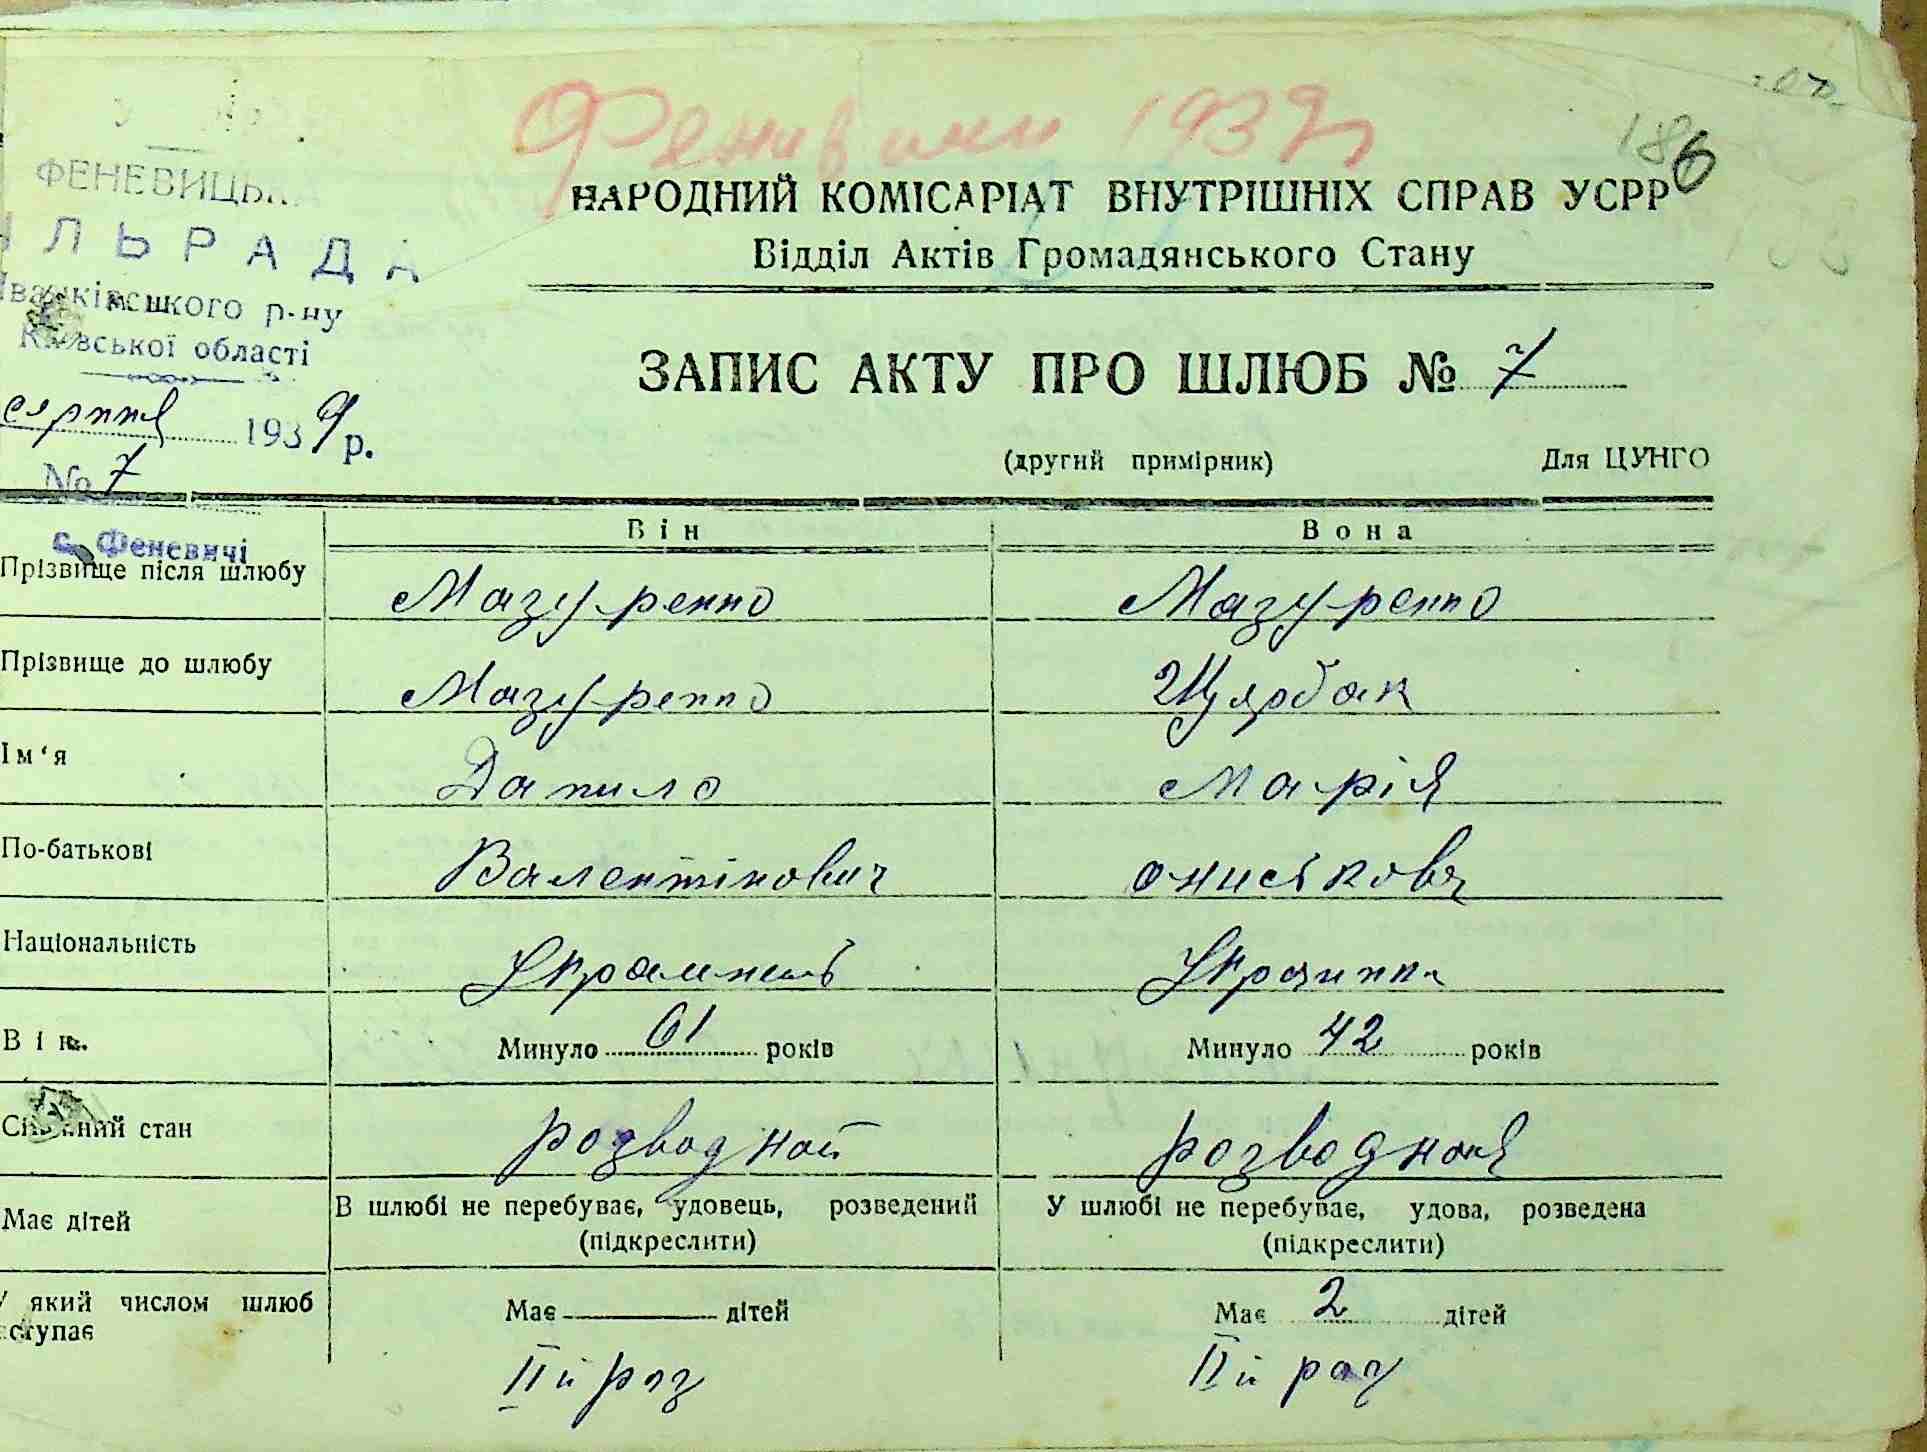 Феневичи 1939
186
ФЕНЕВИЦЬКА
ІЛЬРАДА
Іванківського р-ну
Київської області
серпня 1939 р.
№ 7
с. Феневичі
НАРОДНИЙ КОМІСАРІАТ ВНУТРІШНІХ СПРАВ УСРР
Відділ Актів Громадянського Стану
ЗАПИС АКТУ ПРО ШЛЮБ № 7
(другий примірник) Для ЦУНГО
Він Вона
Прізвище після шлюбу Мазуренко Мазуренко
Прізвище до шлюбу Мазуренко Щярбак
Ім‘я Данило Марія
По-батькові Валентінович Ониськовя
Національність Украинець Украинка
Вік. Минуло 61 років Минуло 42 років
Сімейний стан розводной розводная
В шлюбі не перебуває, удовець, розведений У шлюбі не перебуває, удова, розведена
(підкреслити) (підкреслити)
Має дітей Має — дітей Має 2 дітей
У який числом шлюб
вступає
ІІй раз ІІй раз